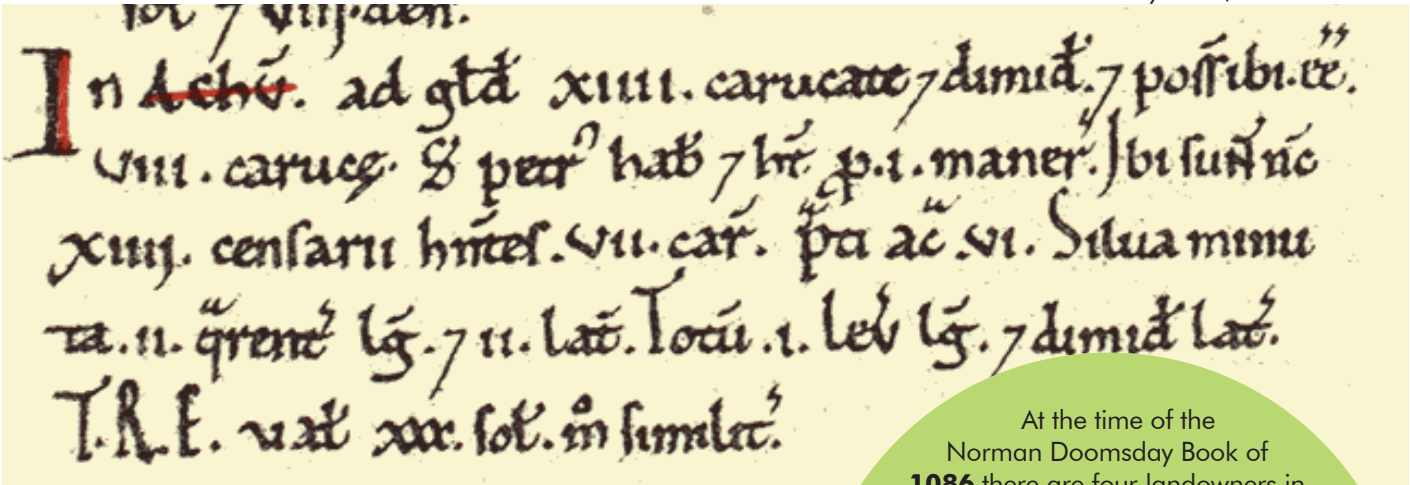 sol ⁊ viij. den.
In Achū. ad gl̄d xiiii. carucate ⁊ dimid̄. ⁊ poss̄ibi.ēē.
viii. carucę. S̄ petr̄ hab̄ ⁊ ht̄ p.i. maner̄. Ibi sun̄ n̄c
xiiij. censarii hn̄tes. vii. car̄. p̄ti ac̄ .vi. Silua minu
ta. ii. qrent̄ lḡ. ⁊ ii. lat̄. Totū .i. lev̄ lḡ. ⁊ dimid̄ lat̄.
T.R.E. ual̄ xxx. sol̄. m̊ similit̄.
At the time of the
Norman Doomsday Book of
1086 there are four landowners in